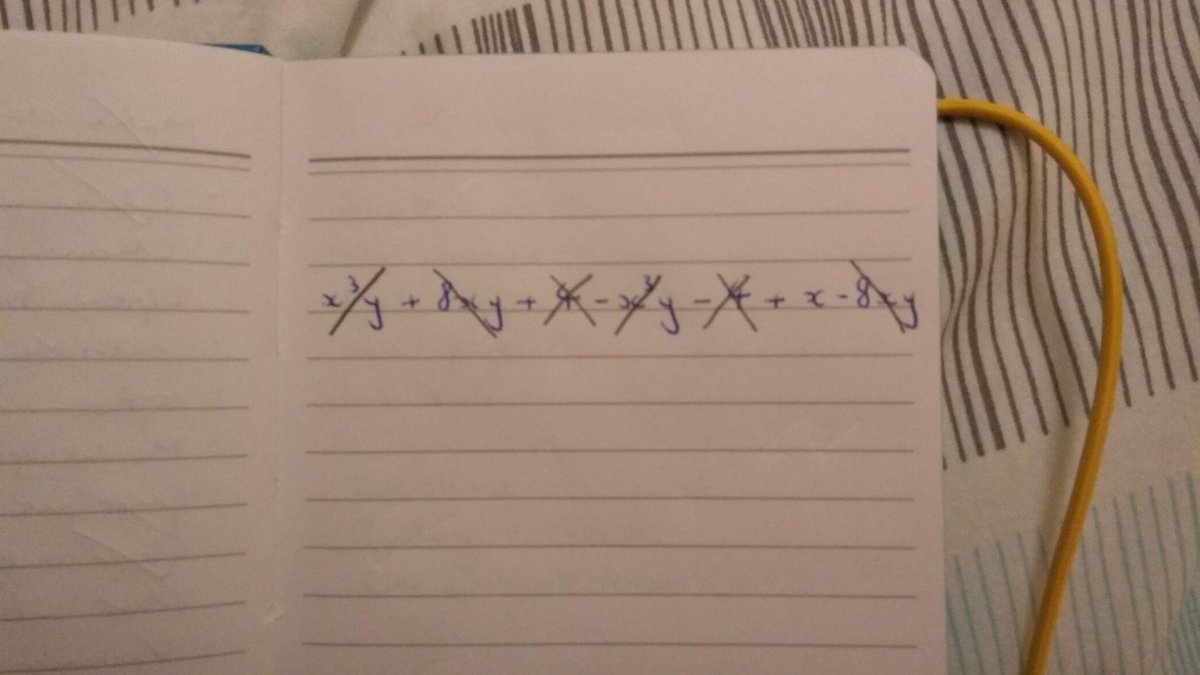 x³y + 8xy + 4 - x³y - 4 + x - 8xy